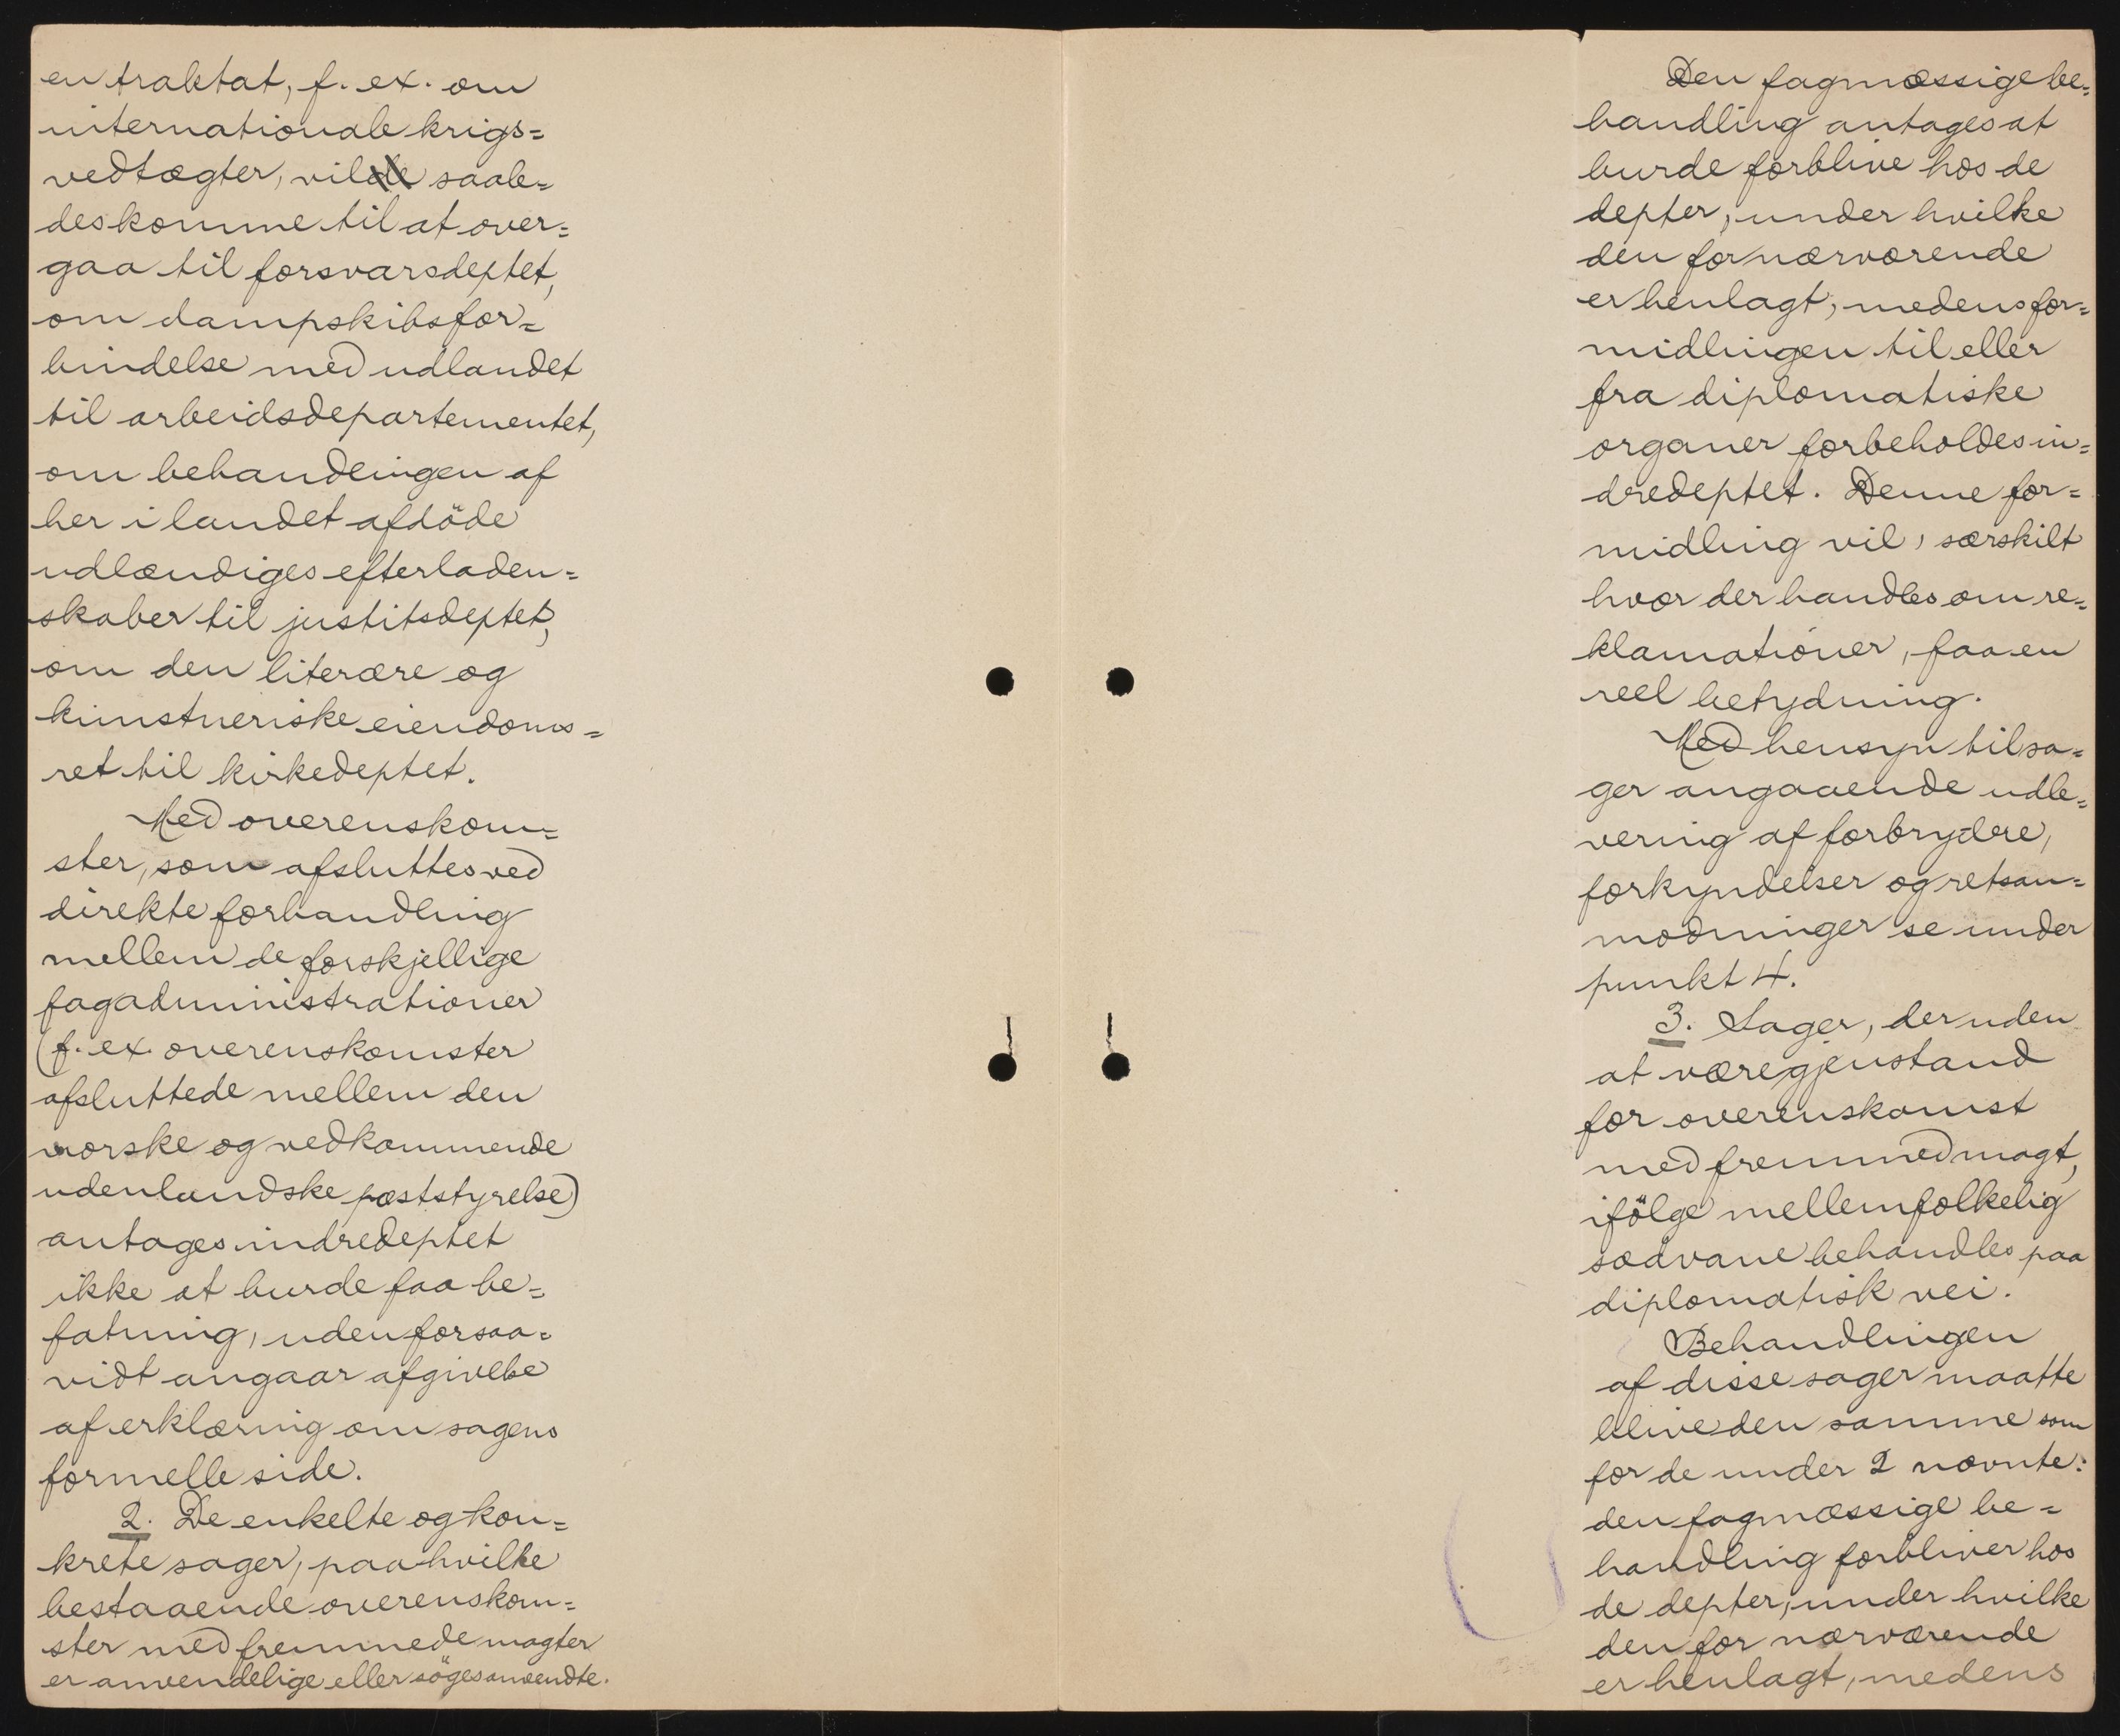 en traktat, f. ex. om
internationale krigs=
vedtægter, vil saale=
des komme til at over=
gaa til forsvarsdeptet,
om dampskibsfor=
bindelse med udlandet
til arbeidsdepartementet,
om behandlingen af
her i landet afdöde
udlændiges efterladen=
skaber til justitsdeptet,
om den literære og
kunstneriske eiendoms=
ret til kirkedeptet.
Med overenskom=
ster, som afsluttes ved
direkte forhandling
mellem de forskjellige
fagadministrationer
(f. ex. overenskomster
afsluttede mellem den
norske og vedkommende
udenlandske poststyrelse)
antages indredeptet
ikke at burde faa be=
fatning, uden forsaa=
vidt angaar afgivelse
af erklæring om sagens
formelle side.
2. De enkelte og kon=
krete sager, paa hvilke
bestaaende overenskom=
ster med fremmede magter
er anvendelige eller söges anvendte.
Den fagmæssige be=
handling antages at
burde forblive hos de
depter, under hvilke
den for nærværende
er henlagt, medens for=
midlingen til eller
fra diplomatiske
organer forbeholdes in=
dredeptet. Denne for=
midling vil, særskilt
hvor der handles om re=
klamationer, faa en
reel betydning.
Med hensyn til sa=
ger angaaende udle=
vering af forbrydere,
forkyndelser og retsan=
modninger se under
punkt 4.
3. Sager, der uden
at være gjenstand
for overenskomst
med fremmed magt,
ifölge mellemfolkelig
sædvane behandles paa
diplomatisk vei.
Behandlingen
af disse sager maatte
blive den samme som
for de under 2 nævnte:
den fagmæssige be=
handling forbliver hos
de depter, under hvilke
den for nærværende
er henlagt, medens